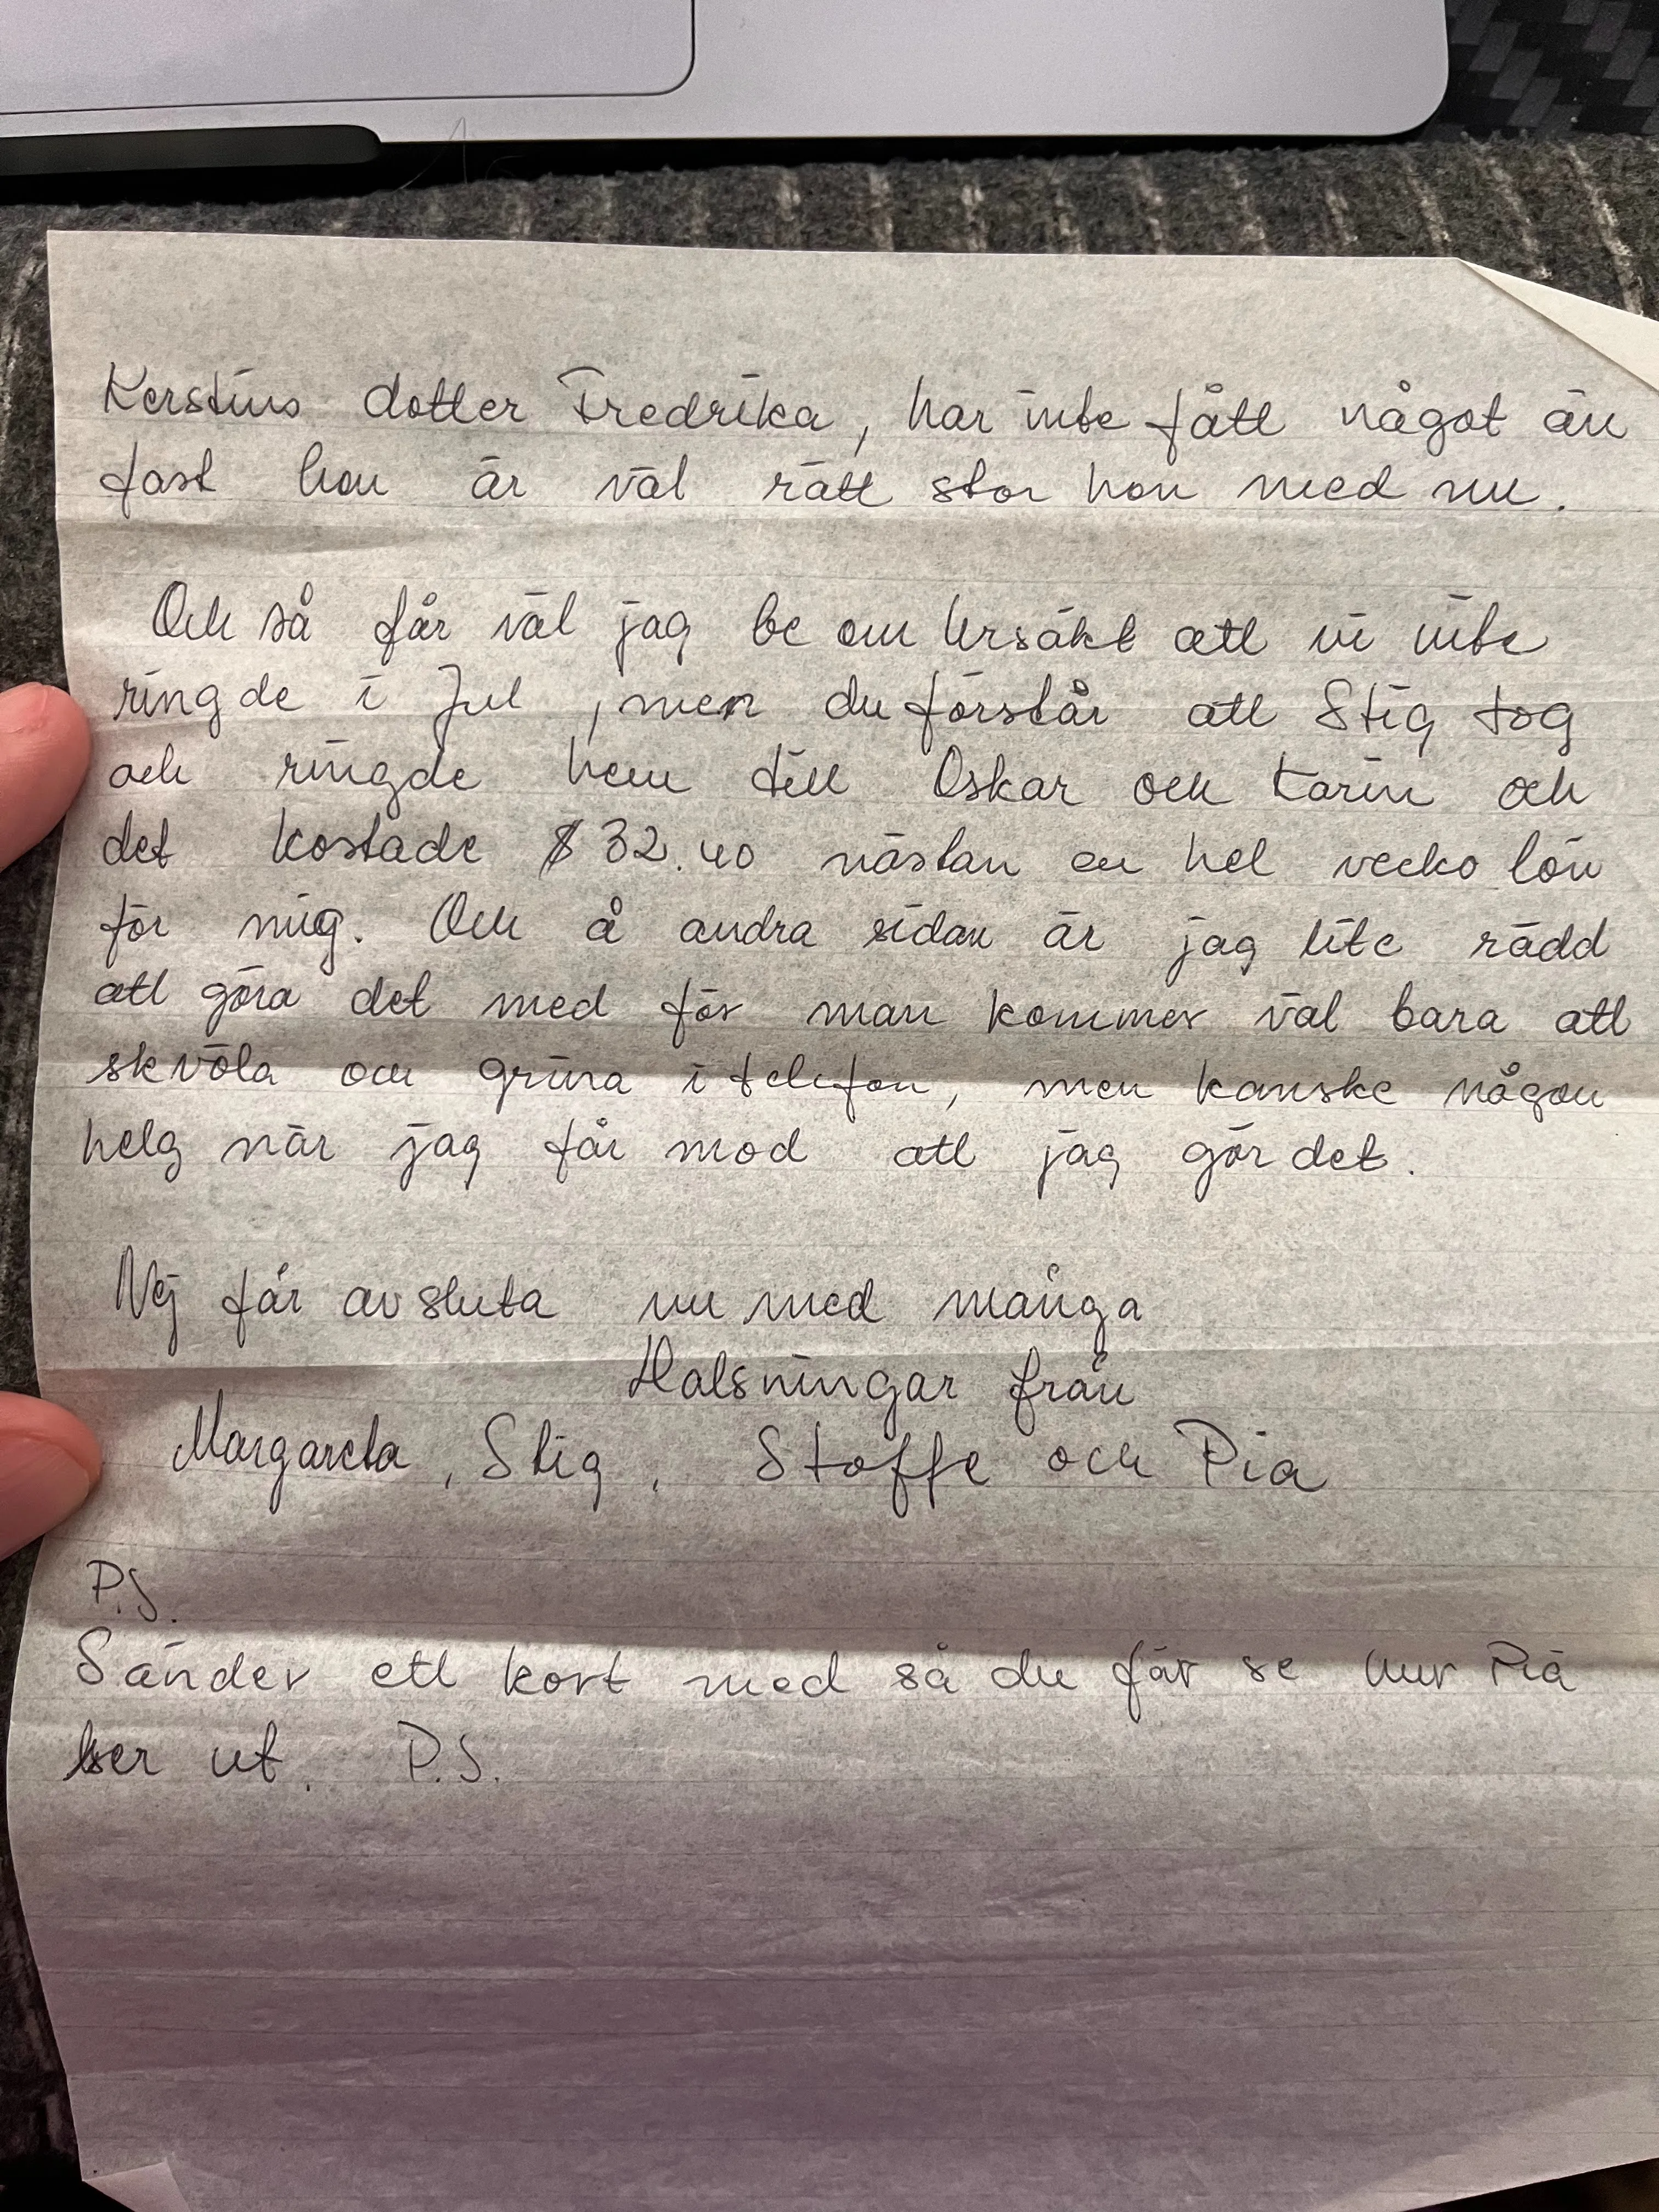 Kerstins dotter Fredrika, har inte fått något än
fast hon är väl rätt stor hon med nu.
Och så får väl jag be om Ursäkt att vi inte
ringde i Jul, men du förstår att Stig tog
och ringde hem till Oskar och Karin och
det kostade $32.40 nästan en hel vecko lön
för mig. Och å andra sidan är jag lite rädd
att göra det med för man kommer väl bara att
skvöla och grina i telefon, men kanske någon
helg när jag får mod att jag gör det.
Nej får avsluta nu med många
Halsningar från
Margareta, Stig, Stoffe och Pia
P.S.
Sänder ett kort med så du får se hur Pia
ser ut. P.S.